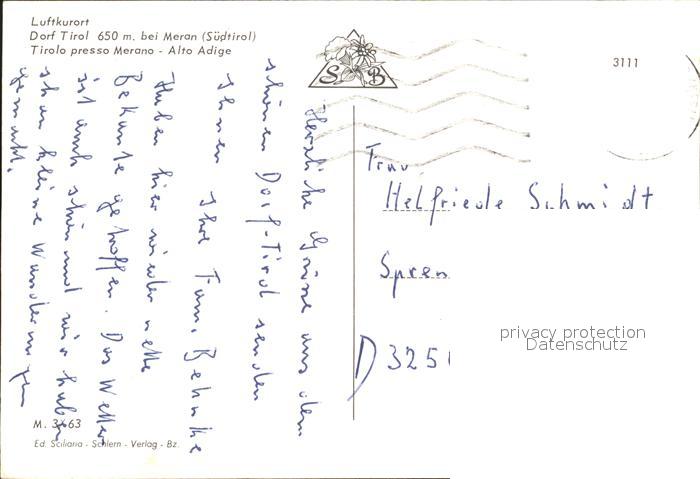 Luftkurort
Dorf Tirol 650 m. bei Meran (Südtirol)
Tirolo presso Merano - Alto Adige
S B
3111
Herzliche Grüsse aus dem
schönen Dorf-Tirol senden
Ihnen Ihre Fam. Behnke
Haben hier wieder nette
Bekannte getroffen. Das Wetter
ist auch schön und wir haben
schon kleine Wanderungen
gemacht.
Frau
Helfriede Schmidt
Spren
D 3251
privacy protection
Datenschutz
M. 3463
Ed. Sciliaria - Schlern - Verlag - Bz.